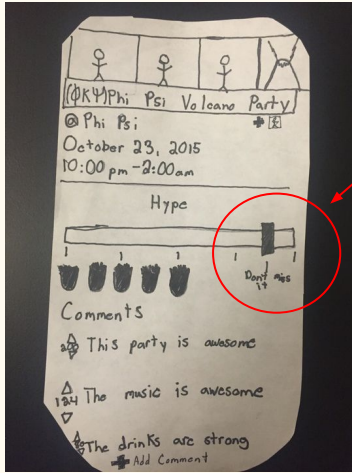 (ΦΚΨ)Phi Psi Volcano Party
@ Phi Psi
October 23, 2015
10:00pm-2:00am
Hype
Don't miss
it
Comments
This party is awesome
124 The music is awesome
The drinks are strong
Add Comment